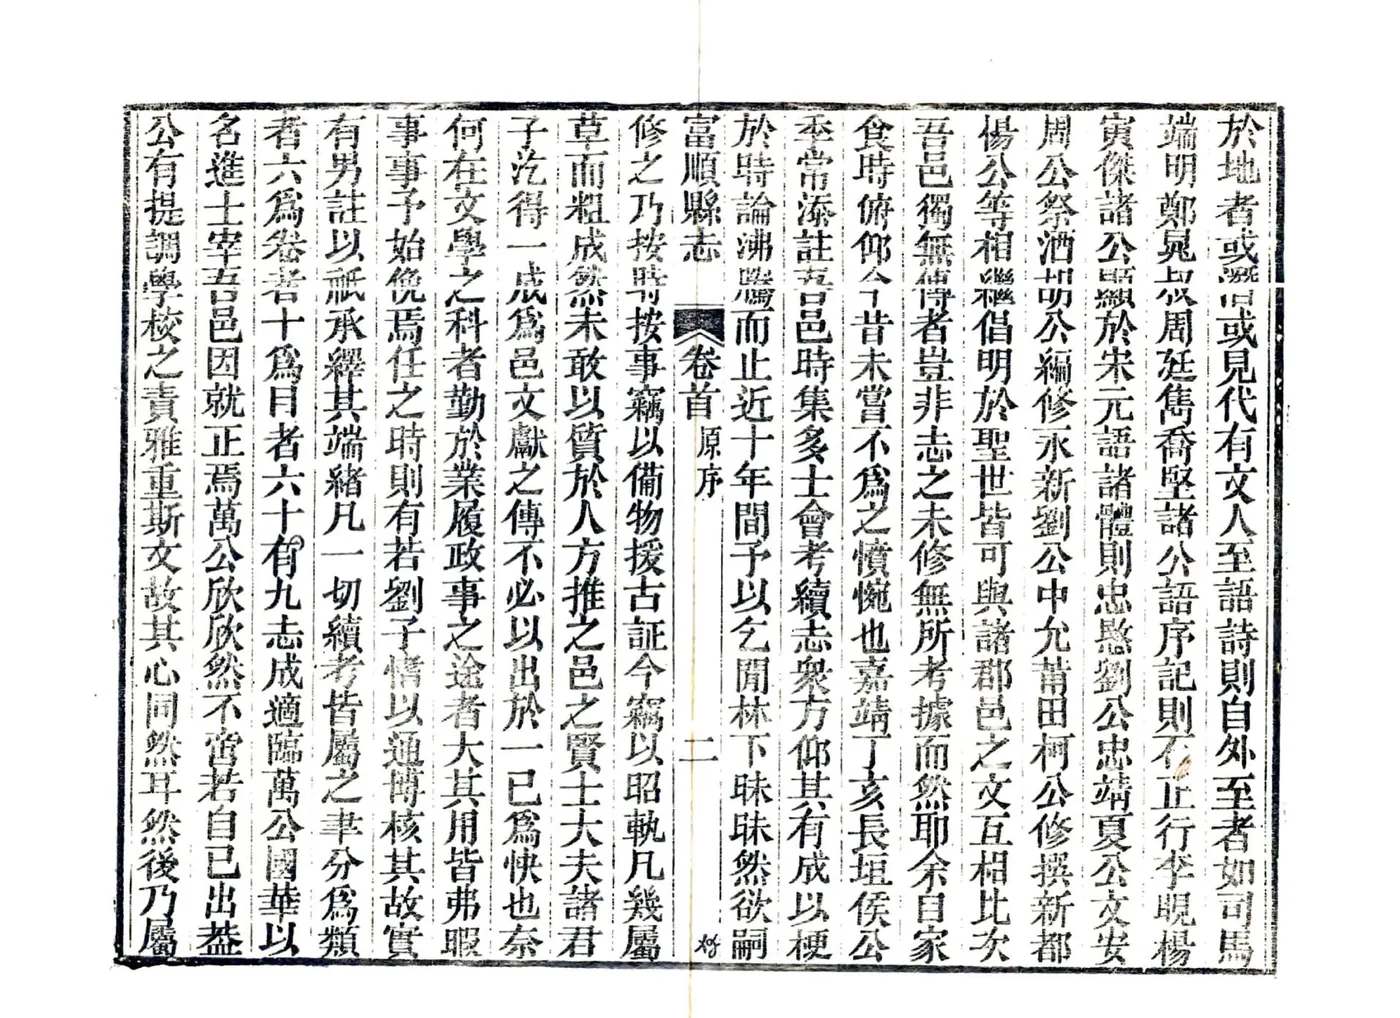 於地者或潛居或見代有文人至語詩則自外至者如司馬
端明鄭晁叔周廷雋喬堅諸公語序記則不正行李晛楊
寅傑諸公顯於宋元語諸體則忠愍劉公忠靖夏公文安
周公祭酒胡公編修永新劉公中允莆田柯公修撰新都
楊公等相繼倡明於聖世皆可與諸郡邑之文互相比次
吾邑獨無傳者豈非志之未修無所考據而然耶余自家
食時俯仰今昔未嘗不為之憤惋也嘉靖丁亥長垣侯公
季常添註吾邑時集多士會考續志衆方仰其有成以梗
於時論沸騰而止近十年間予以乞閒林下昧昧然欲嗣
富順縣志 卷首 原序 二
修之乃按時按事竊以備物援古証今竊以昭執凡幾屬
草而粗成然未敢以質於人方推之邑之賢士大夫諸君
子汔得一成為邑文獻之傳不必以出於一已為快也奈
何在文學之科者勤於業履政事之途者大其用皆弗暇
事事予始俛焉任之時則有若劉子惰以通博核其故實
有男註以祇承繹其端緒凡一切續考皆屬之聿分為類
者六為卷者十為目者六十有九志成適臨萬公國華以
名進士宰吾邑因就正焉萬公欣欣然不啻若自已出葢
公有提調學校之責雅重斯文故其心同然耳然後乃屬